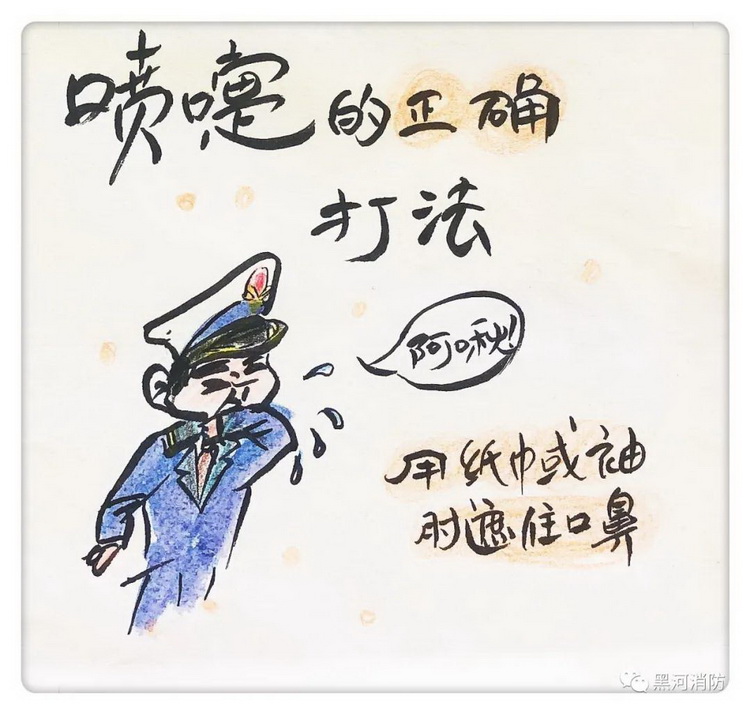 喷嚏的正确
打法
阿啾!
用纸巾或袖
肘遮住口鼻
黑河消防